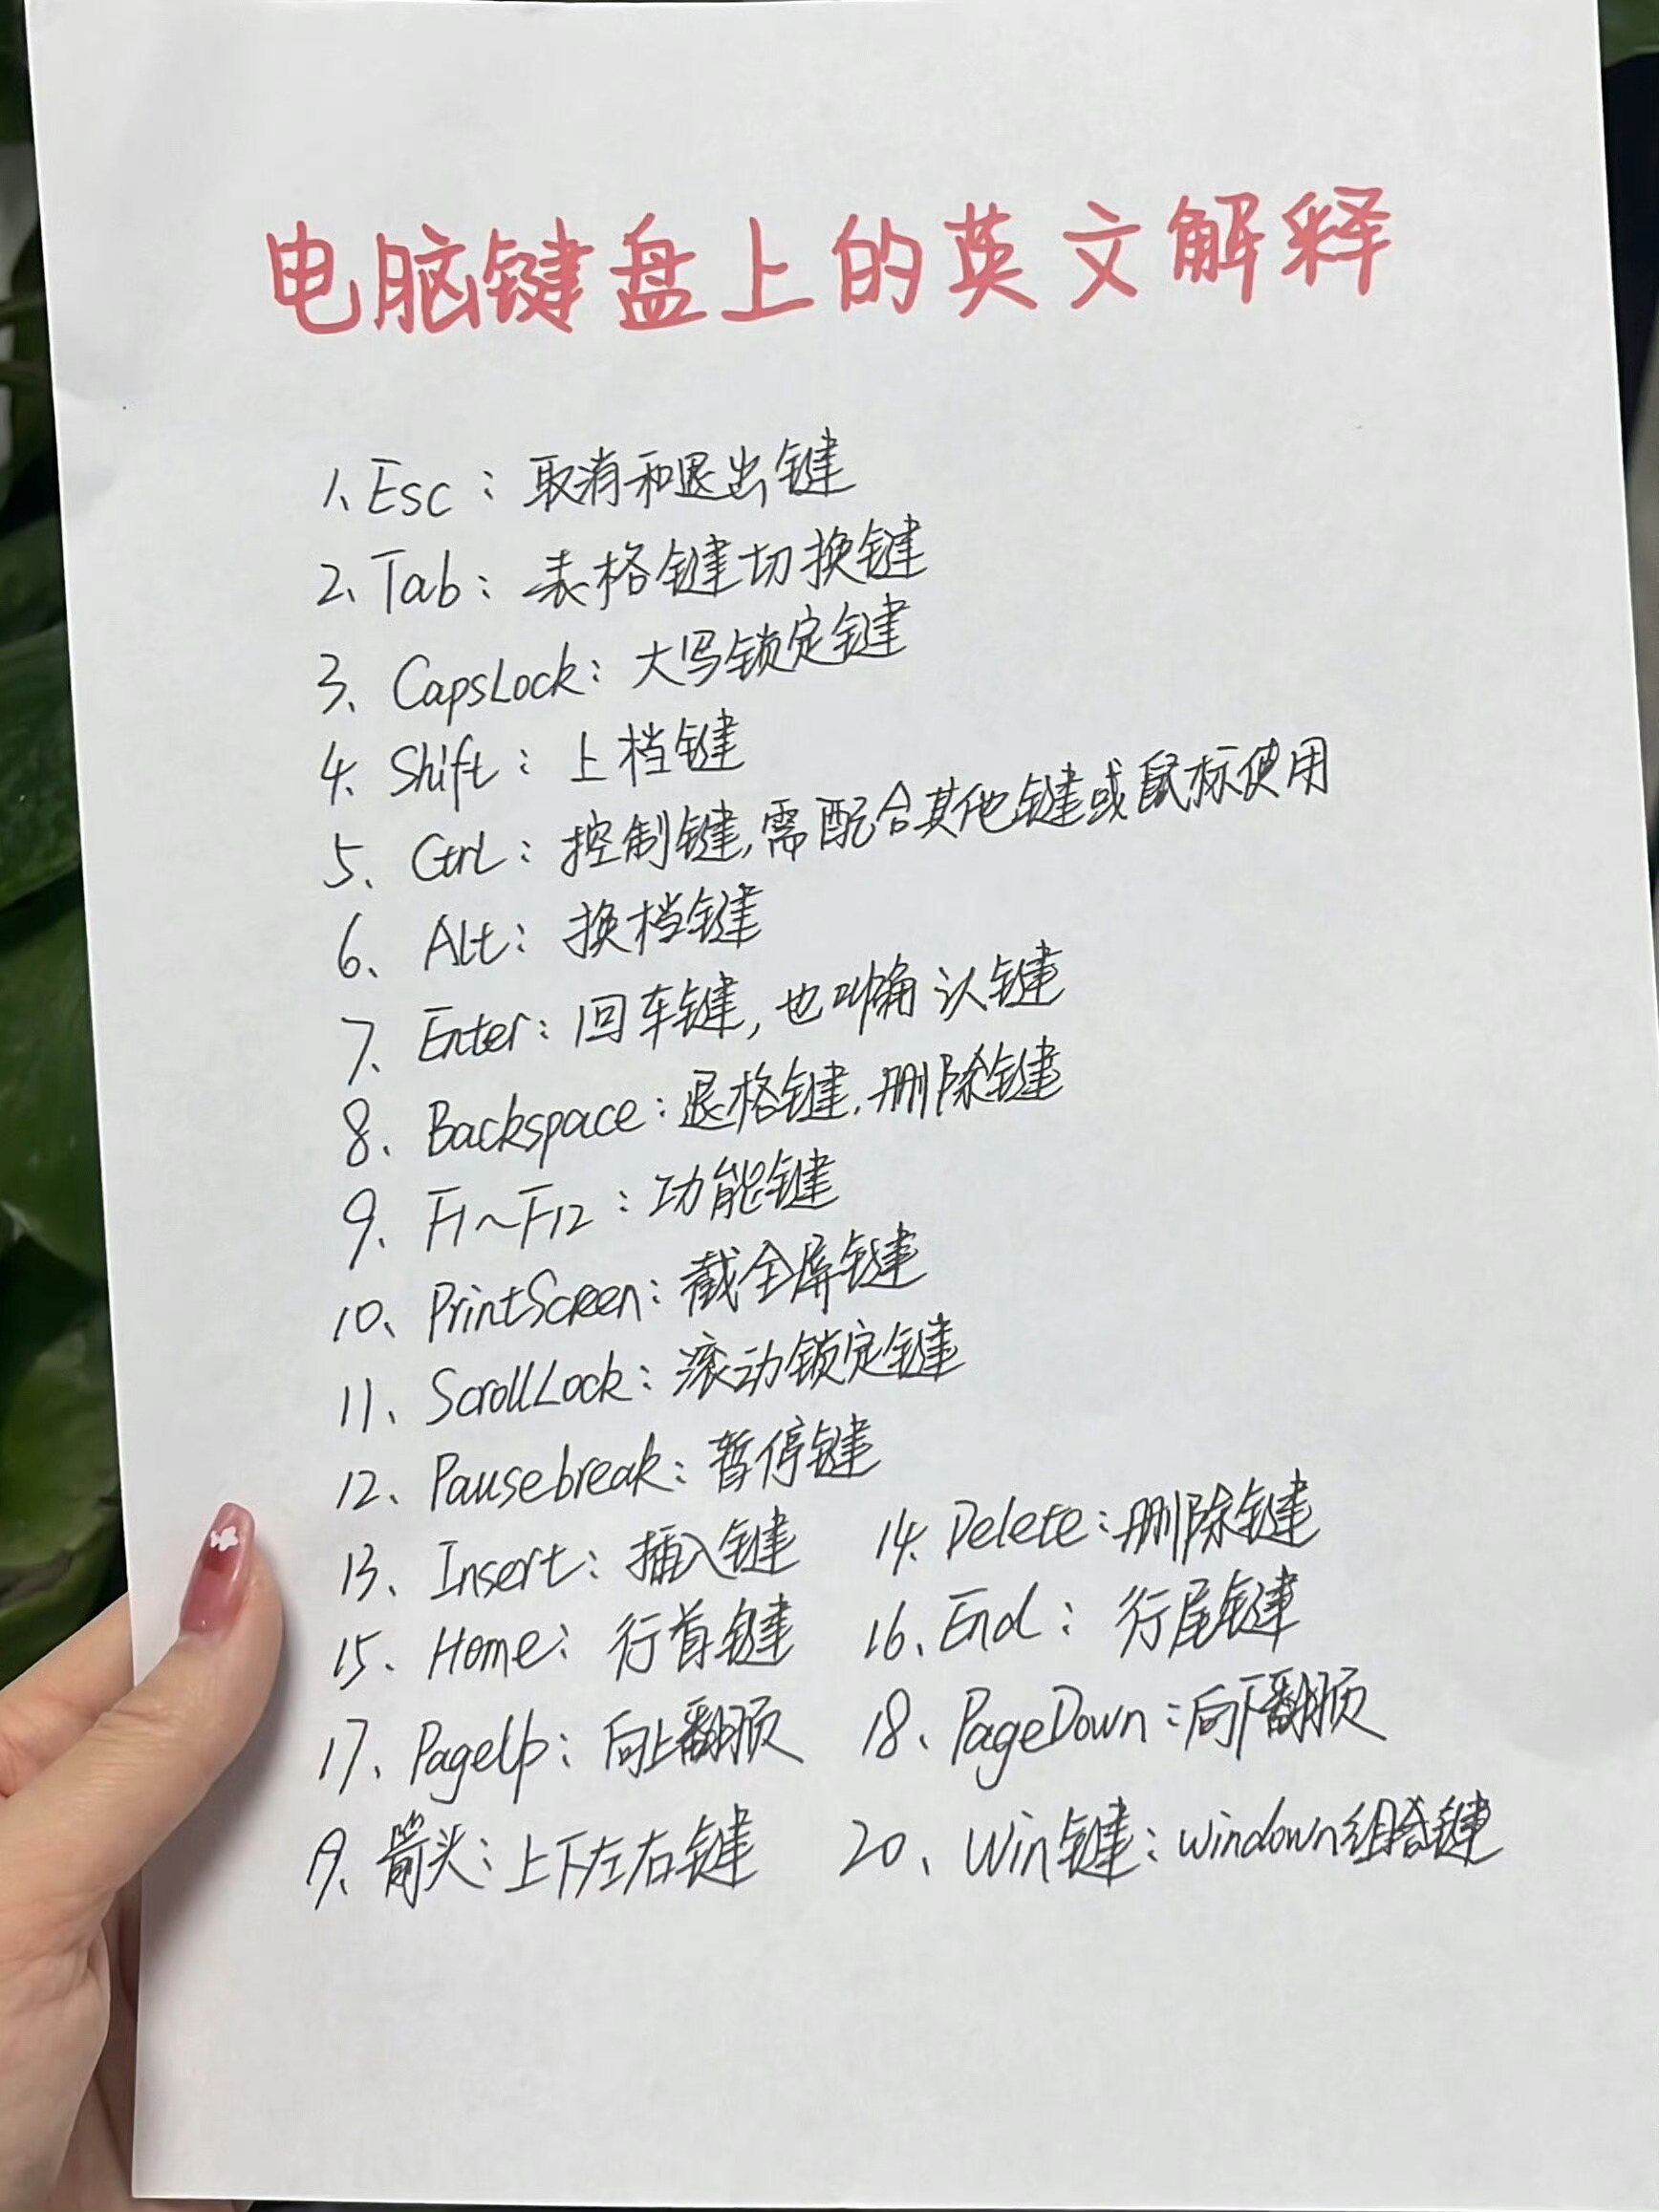 电脑键盘上的英文解释
1、Esc：取消和退出键
2、Tab：表格键切换键
3、CapsLock：大写锁定键
4、Shift：上档键
5、Ctrl：控制键，需配合其他键或鼠标使用
6、Alt：换档键
7、Enter：回车键，也叫确认键
8、Backspace：退格键，删除键
9、F1～F12：功能键
10、PrintScreen：截全屏键
11、ScrollLock：滚动锁定键
12、Pausebreak：暂停键
13、Insert：插入键 14、Delete：删除键
15、Home：行首键 16、End：行尾键
17、PageUp：向上翻页 18、PageDown：向下翻页
19、箭头：上下左右键 20、Win键：windown组合键